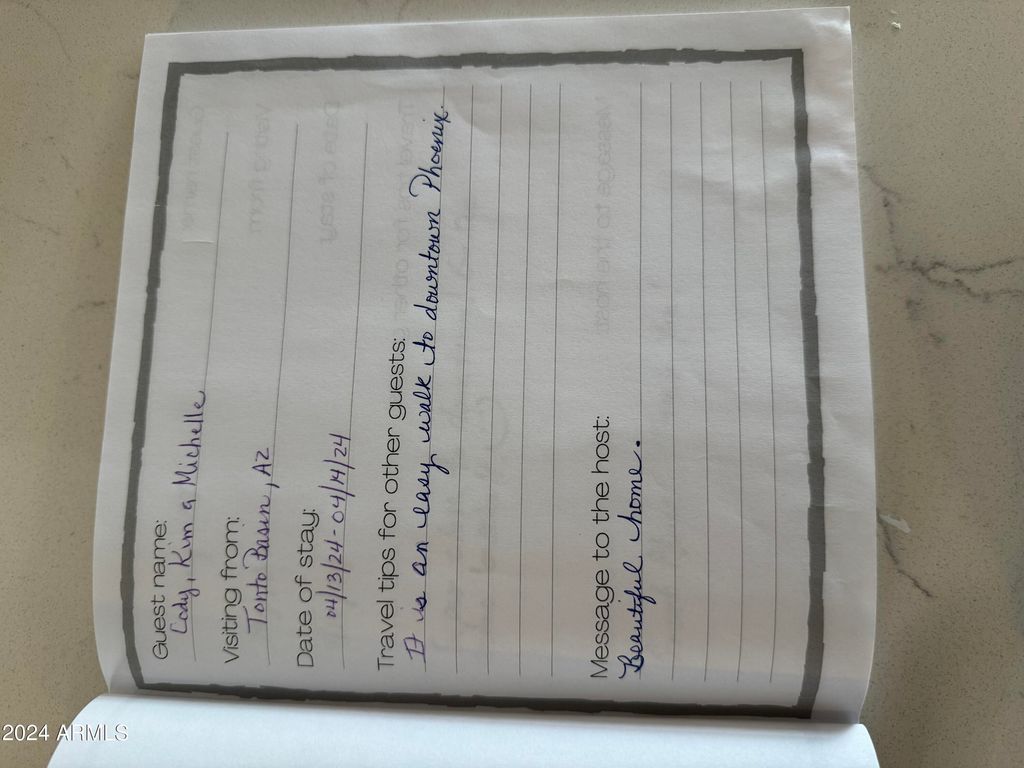 Guest name:
Cody, Kim & Michelle
Visiting from:
Tonto Basin, AZ
Date of stay:
04/13/24-04/14/24
Travel tips for other guests:
It is an easy walk to downtown Phoenix.
Message to the host:
Beautiful home.
2024 ARMLS